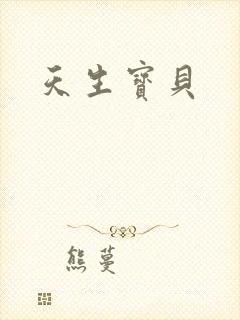 天生寶貝
熊蔓